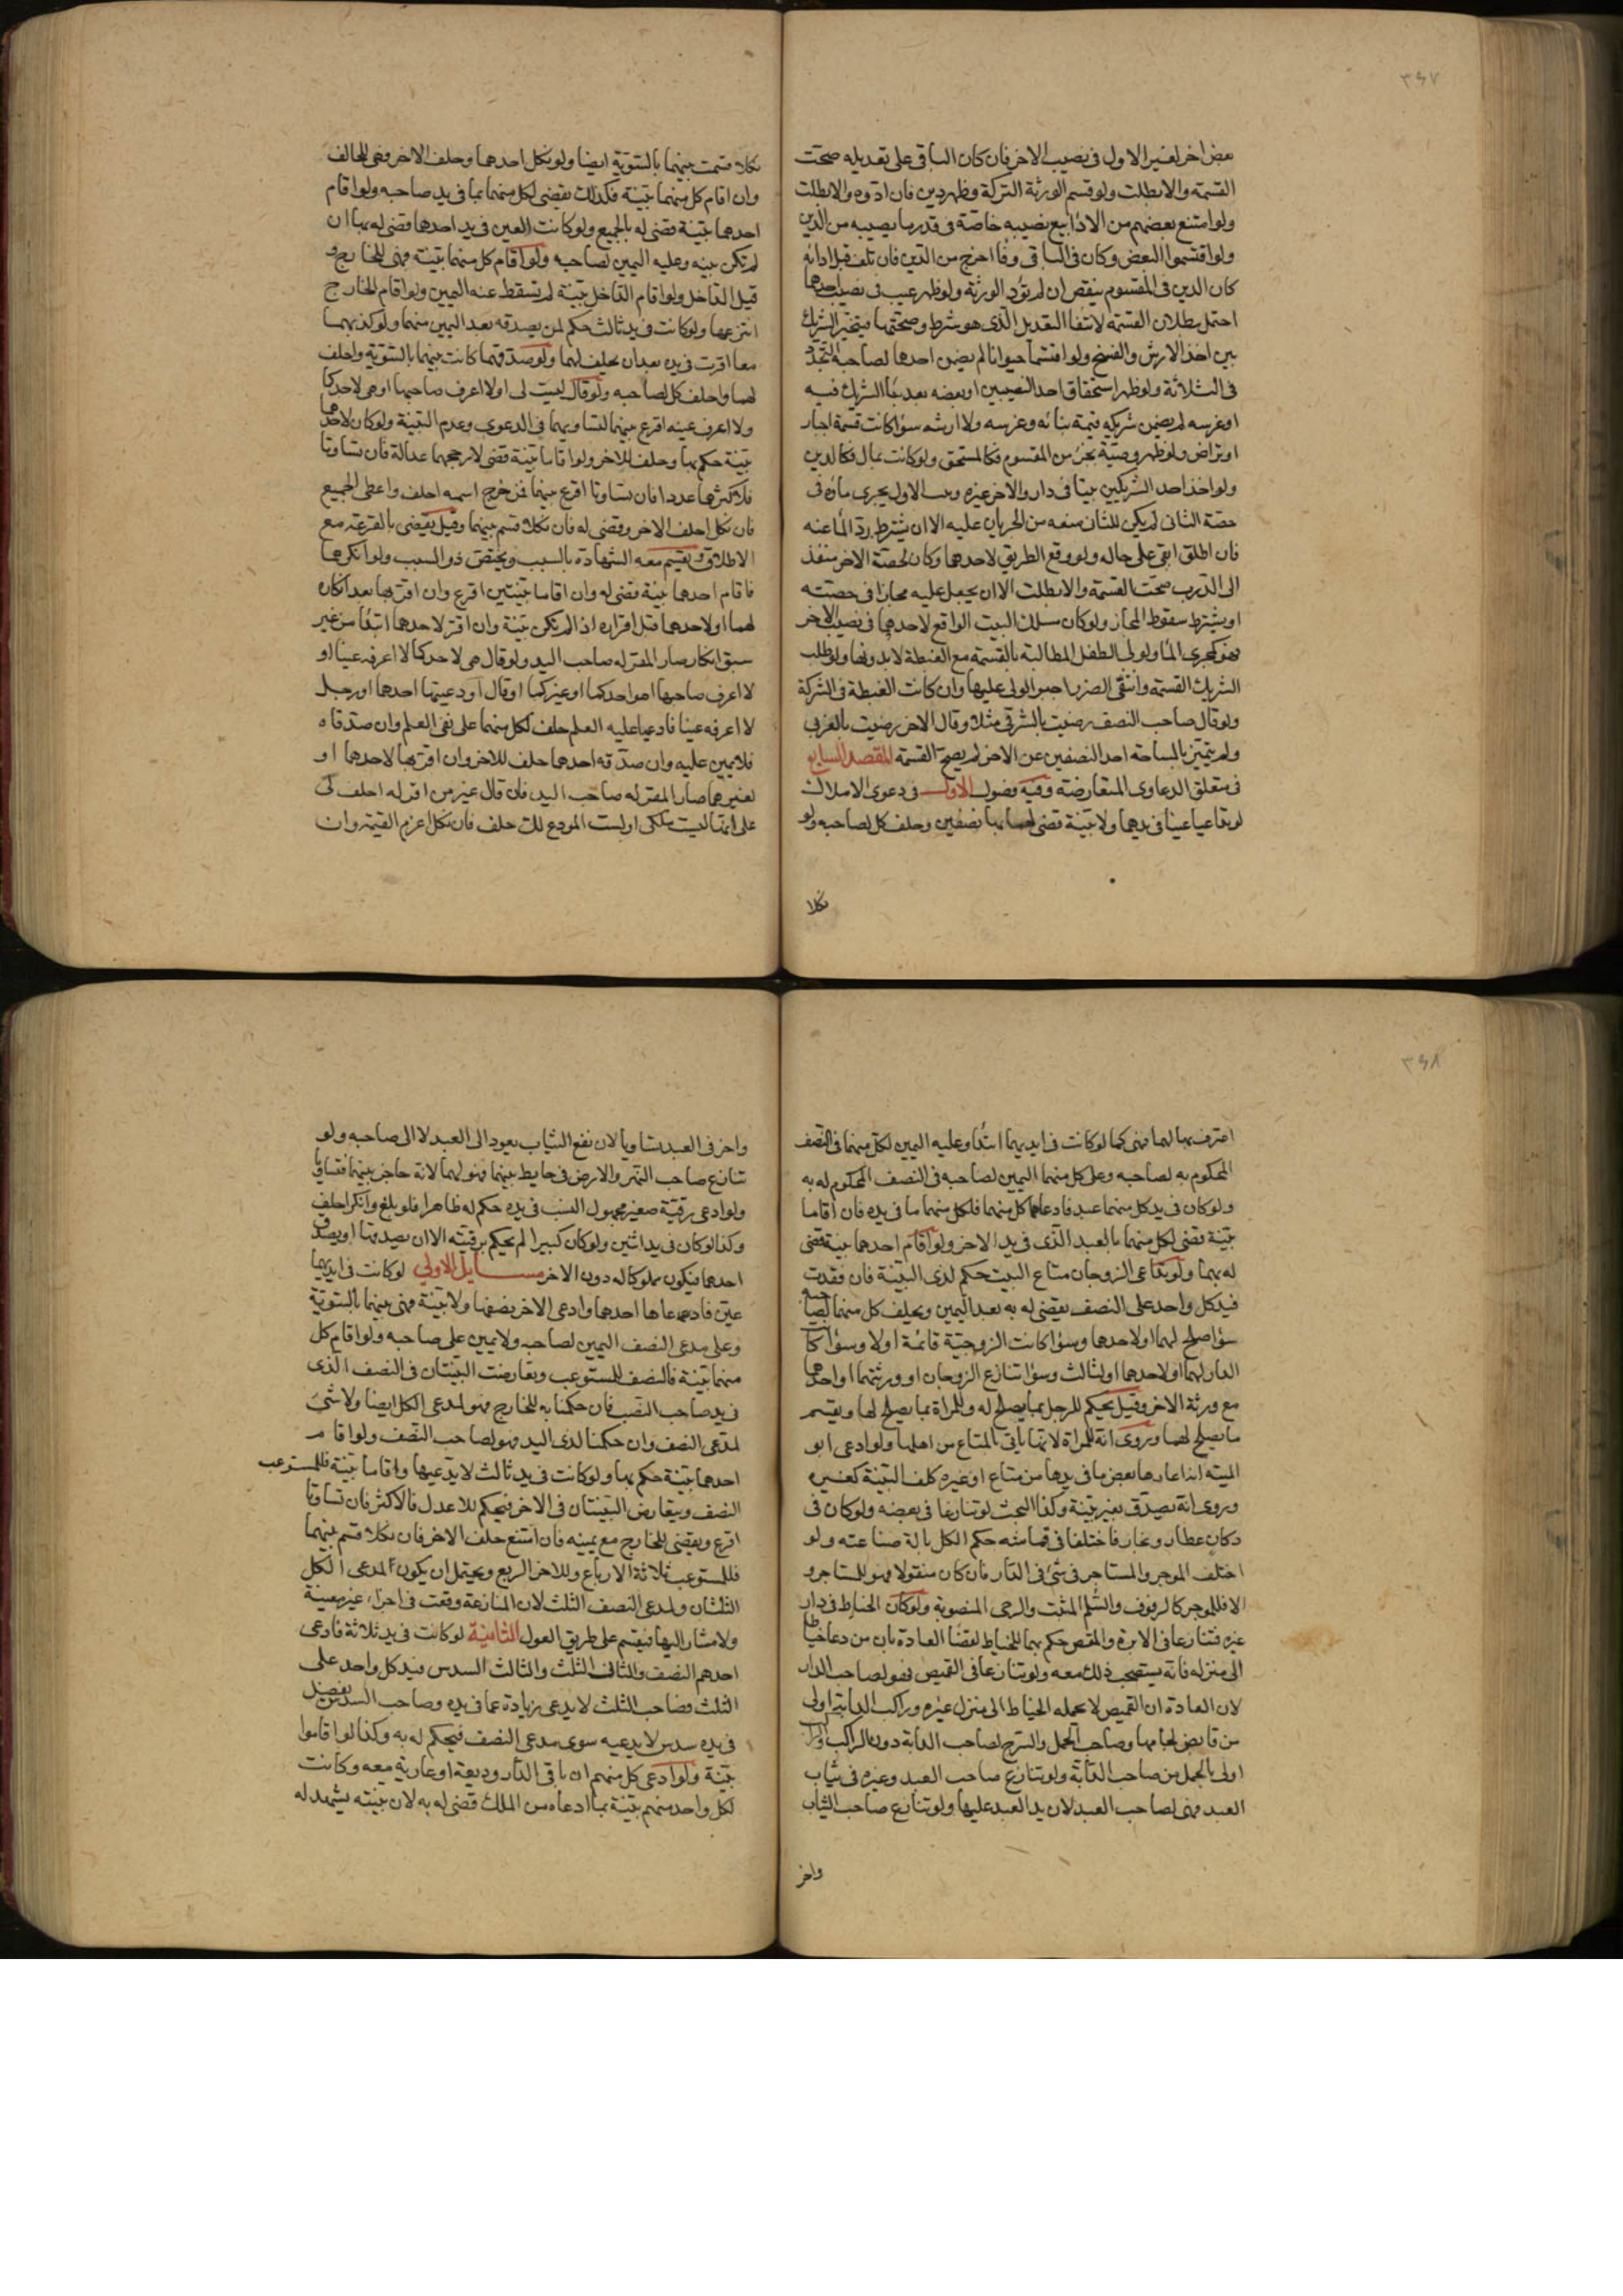 ٣٤٧
بعض اخر لغير الاول في نصيب الاخر فان كان الباقي على تعديله صحّت
القسمة والا بطلت ولو قسم الورثة التركة وظهر دين فان ادّوه والا بطلت
ولو امتنع بعضهم من الاداء بيع نصيبه خاصّة في قدر ما يصيبه من الدين
ولو اقتسموا البعض وكان في الباقي وفاء اخرج من الدين فان تلف قبل ادائه
كان الدين في المقسوم ينقص ان لم تؤد الورثة ولو ظهر عيب في نصيب احدهما
احتمل بطلان القسمة لانتفاء التعديل الّذي هو شرط وصحّتها فيتخيّر الشريك
بين اخذ الارش والفسخ ولو اقتسما حيوانا لم يضمن احدهما لصاحبه التجدّد
في الثلاثة ولو ظهر استحقاق احد النصيبين او بعضه بعد بناء الشريك فيه
او غرسه لم يضمن شريكه قيمة بنائه وغرسه ولا ارشه سواء كانت قسمة اجبار
او تراض ولو ظهر وصيّة بجزء من المقسوم فكالمستحق ولو كانت بمال فكالدين
ولو اخذ احد الشريكين بيتا في دار والاخر غيره وبيت الاول يجري ماؤه في
حصّة الثاني لم يكن للثاني منعه من الجريان عليه الا ان يشترط ردّ الماء عنه
فان اطلق ابقي على حاله ولو وقع الطريق لاحدهما وكان لحصّة الاخر منفذ
الى الدرب صحّت القسمة والا بطلت الا ان يجعل عليه مجازا في حصّته
او يشترط سقوط المجاز ولو كان مسلك البيت الواقع لاحدهما في نصيب الاخر
فهو كمجرى الماء ولولي الطفل المطالبة بالقسمة مع الغبطة لا بدونها ولو طلب
الشريك القسمة وانتفى الضرر اجبر الولي عليها وان كانت الغبطة في الشركة
ولو قال صاحب النصف رضيت بالشرقي مثلا وقال الاخر رضيت بالغربي
ولم يتميّز بالمساحة احد النصفين عن الاخر لم يصحّ القسمة المقصد السابع
في متعلق الدعاوى المتعارضة وفيه فصول الاول في دعوى الاملاك
لو تداعيا عينا في يدهما ولا بيّنة قضي لهما بها نصفين وحلف كل لصاحبه ولو
نكلا
نكلا قسمت بينهما بالسّويّة ايضا ولو نكل احدهما وحلف الاخر فهي للحالف
وان اقام كل منهما بيّنة فكذلك يقضي لكل منهما بما في يد صاحبه ولو اقام
احدهما بيّنة قضي له بالجميع ولو كانت العين في يد احدهما قضي له بها ان
لم تكن بينه وعليه اليمين لصاحبه ولو اقام كل منهما بيّنة فهي للخارج و
قيل الداخل ولو اقام الدّاخل بيّنة لم تسقط عنه اليمين ولو اقام الخارج
انتزعها ولو كانت في يد ثالث حكم لمن يصدقه بعد اليمين منهما ولو كذبهما
معا اقرت في يده بعد ان يحلف لهما ولو صدقهما كانت بينهما بالسّويّة واحلف
لهما واحلف كل لصاحبه ولو قال ليست لي اولا اعرف صاحبها او هي لاحدكما
ولا اعرف عينه اقرع بينهما لتساويهما في الدعوى وعدم البيّنة ولو كان لاحدهما
بيّنة حكم بها وحلف للاخر ولو اقاما بيّنة قضي لارجحهما عدالة فان تساوتا
فلاكثرهما عددا فان تساوتا اقرع بينهما فمن خرج اسمه احلف واعطى الجميع
فان نكل احلف الاخر وقضي له فان نكلا قسم بينهما وقيل يقضي بالقرعة مع
الاطلاق ويقسم معه الشهادة بالسبب ويختص ذو السبب ولو انكرهما
فاقام احدهما بيّنة قضي له وان اقاما بيّنتين اقرع وان اقرّ بها بعد انكاره
لهما او لاحدهما قبل اقراره اذا لم تكن بيّنة وان اقرّ لاحدهما ابتداء من غير
سبق انكار صار المقرّ له صاحب اليد ولو قال هي لاحدكما لا اعرفه عينا او
لا اعرف صاحبها اهو احدكما او غيركما او قال اودعنيها احدهما او رجل
لا اعرفه عينا فادعيا عليه العلم حلف لكل منهما على نفي العلم وان صدّقاه
فلا يمين عليه وان صدّقه احدهما حلف للاخر وان اقرّ بها لاحدهما او
لغيرهما صار المقرّ له صاحب اليد فان قال غير من اقرّ له احلف لي
على انّها ليست ملكي او لست المودع لك حلف فان نكل اغرم القيمة وان
٣٤٨
اعترف بها لهما فهي كما لو كانت في ايديهما ابتداء وعليه اليمين لكلّ منهما في النصف
المحكوم به لصاحبه وعلى كل منهما اليمين لصاحبه في النصف المحكوم له به
ولو كان في يد كل منهما عبد فادعاهما كل منهما فلكل منهما ما في يده فان اقاما
بيّنة قضي لكل منهما بالعبد الّذي في يد الاخر ولو اقام احدهما بيّنة قضي
له بهما ولو تداعى الزوجان متاع البيت حكم لذي البيّنة فان فقدت
فيد كل واحد على النصف يقضي له به بعد اليمين ويحلف كل منهما لصاحبه
سواء صلح لهما او لاحدهما وسواء كانت الزوجيّة قائمة اولا وسواء كانت
الدار لهما او لاحدهما او لثالث وسواء تنازع الزوجان او ورثتهما او احدهما
مع ورثة الاخر وقيل يحكم للرجل بما يصلح له وللمراة بما يصلح لها ويقسم
ما يصلح لهما وروي انّه للمراة لانّها تأتي بالمتاع من اهلها ولو ادعى ابو
الميته انه اعارها بعض ما في يدها من متاع او غيره كلف البيّنة كغيره
وروي انّه يصدّق بغير بيّنة وكذا البحث لو تنازعا في بعضه ولو كان في
دكان عطار ونجار فاختلفا في قماشه حكم لكل بالة صناعته ولو
اختلف الموجر والمستاجر في شئ في الدار فان كان منقولا فهو للمستاجر و
الا فللموجر كالرفوف والسّلم المثبت والرحى المنصوبة ولو كان الخياط في دار
غيره فتنازعا في الابرة والمقص حكم بهما للخياط لقضاء العادة بان من دعا خياطا
الى منزله فانّه يستصحب ذلك معه ولو تنازعا في القميص فهو لصاحب الدار
لان العادة ان القميص لا يحمله الخياط الى منزل غيره وراكب الدابّة اولى
من قابض لجامها وصاحب الحمل والسّرج لصاحب الدابة دون الراكب
اولى بالحمل من صاحب الدّابة ولو تنازع صاحب العبد وغيره في ثياب
العبد فهي لصاحب العبد لان يد العبد عليها ولو تنازع صاحب الثياب
واخر
واخر في العبد تساويا لان نفع الثياب يعود الى العبد لا الى صاحبه ولو
تنازع صاحب النهر والارض في حايط بينهما فهو لهما لانّه حاجز بينهما فتساويا
ولو ادعى رقيّة صغير مجهول النسب في يده حكم له ظاهرا فلو بلغ وانكر احلف
وكذا لو كان في يد اثنين ولو كان كبيرا لم يحكم برقيّته الا ان يصدقهما او يصدق
احدهما فيكون مملوكا له دون الاخر مسايل الاولى لو كانت في ايديهما
عين فادعاها احدهما وادعى الاخر نصفها ولا بيّنة فهي بينهما بالسّويّة
وعلى مدعي النصف اليمين لصاحبه ولا يمين على صاحبه ولو اقام كل
منهما بيّنة فالنصف للمستوعب وتعارضت البيّنتان في النصف الّذي
في يد صاحب النّصف فان حكمنا به للخارج فهو لمدعي الكل ايضا ولا شئ
لمدّعي النصف وان حكمنا لذي اليد فهو لصاحب النّصف ولو اقام
احدهما بيّنة حكم بها ولو كانت في يد ثالث لا يدّعيها واقاما بيّنة فللمستوعب
النصف ويتعارض البيّنتان في الاخر فيحكم للاعدل فالاكثر فان تساوتا
اقرع ويقضي للخارج مع يمينه فان امتنع حلف الاخر فان نكلا قسم بينهما
فللمستوعب ثلاثة الارباع وللاخر الربع ويحتمل ان يكون لمدعي الكل
الثلثان ولمدعي النصف الثلث لان المنازعة وقعت في اجزاء غير معينة
ولا مشار اليها فيقسم على طريق العول الثانية لو كانت في يد ثلاثة فادعى
احدهم النصف والثاني الثلث والثالث السدس فيد كل واحد على
الثلث فصاحب الثلث لا يدعي زيادة عما في يده وصاحب السدس يفضل
في يده سدس لا يدعيه سوى مدعي النصف فيحكم له به وكذا لو اقاموا
بيّنة ولو ادعى كل منهم ان باقي الدّار وديعة او عارية معه وكانت
لكل واحد منهم بيّنة بما ادعاه من الملك قضي له به لان بيّنته يشهد له